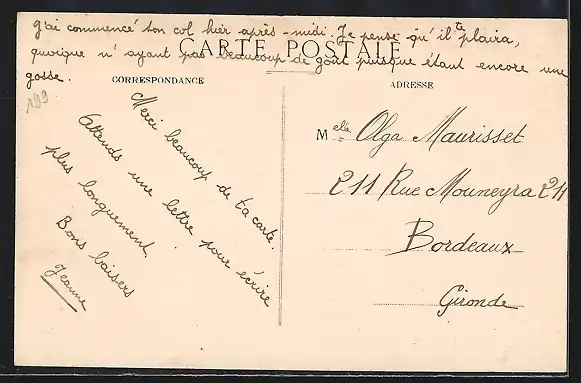 J'ai commencé ton col hier après-midi. Je pense qu'il te plaira,
quoique n'ayant pas beaucoup de goût puisque étant encore une
gosse.
CARTE POSTALE
CORRESPONDANCE
ADRESSE
199
Merci beaucoup de ta carte.
Attends une lettre pour écrire
plus longuement
Bons baisers
Jeanne
Melle Olga Maurisset
211 Rue Mouneyra 211
Bordeaux
Gironde